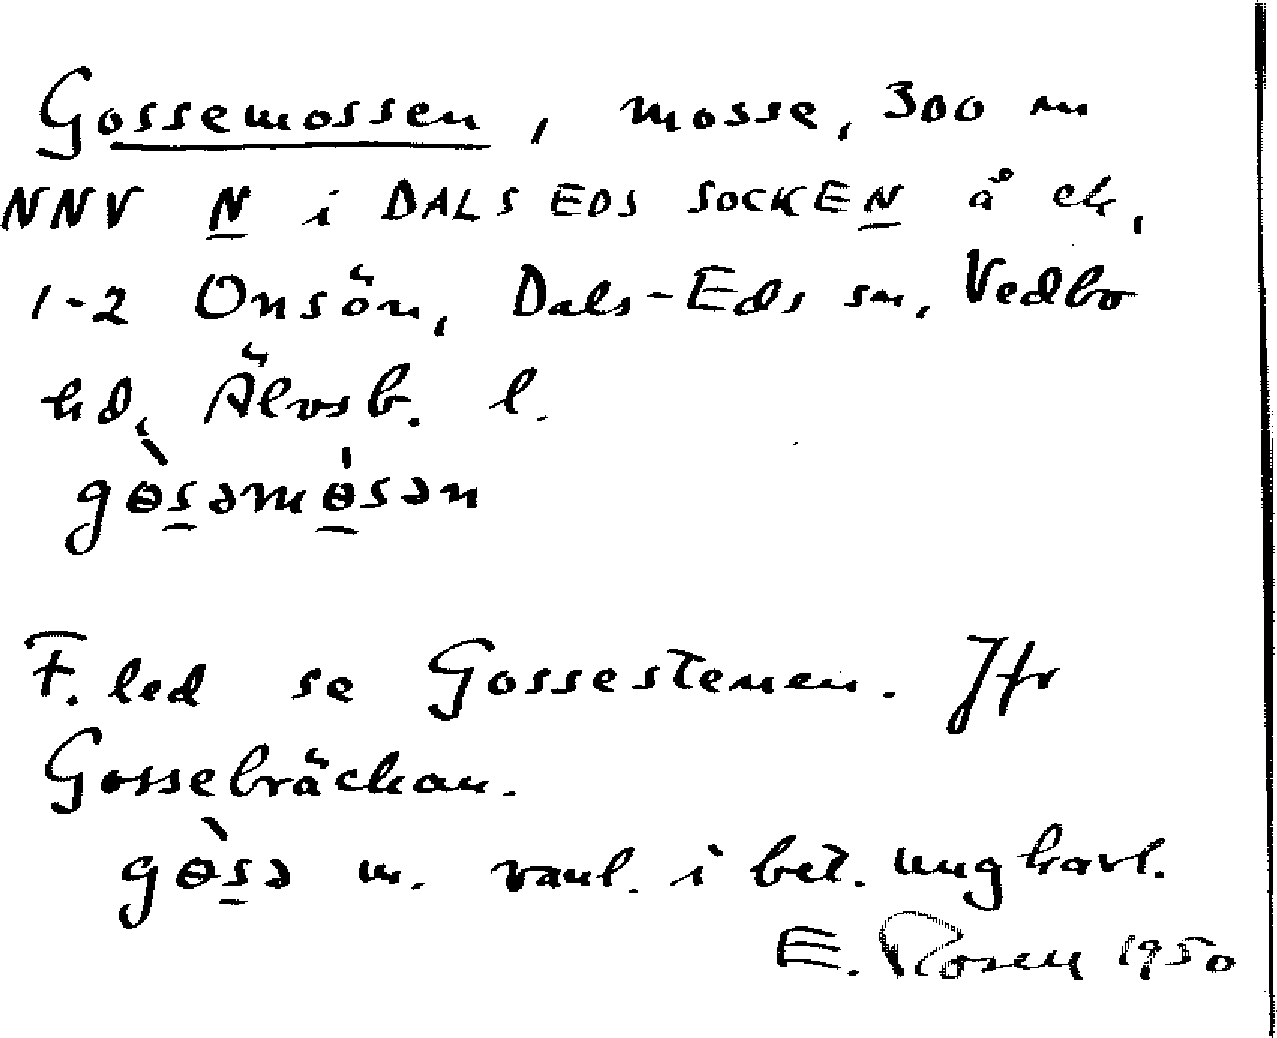 Gossemossen, mosse, 300 m
NNV N i DALS EDS SOCKEN å ek.
1-2 Onsön, Dals-Eds sn, Vedbo
hd, Älvsb. l.
gɵ̀səmɵ̍sən
F. led se Gossestenen. Jfr
Gossebräckan.
gɵ̀sə m. vanl. i bet. ung karl.
E. Rosen 1950